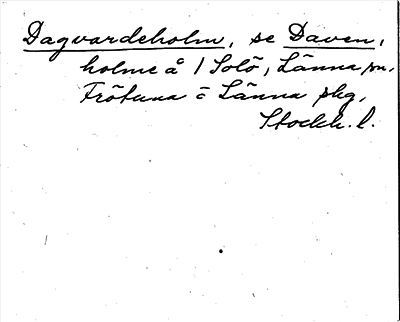 Dagvardeholm, se Daven,
holme å 1 Solö, Länna sn,
Frötuna o Länna skg,
Stockh. l.